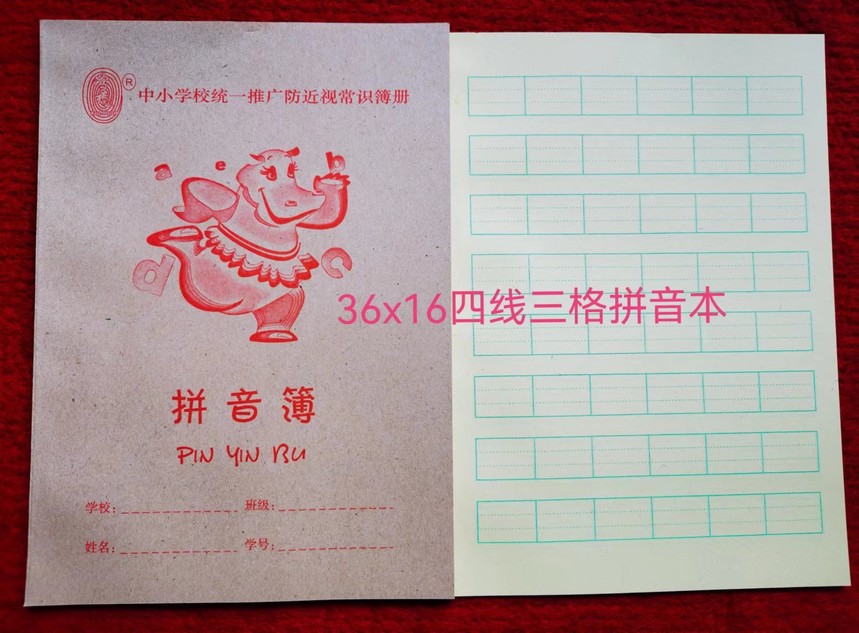 ® 中小学校统一推广防近视常识簿册
a e b
d c
36x16四线三格拼音本
拼音簿
PIN YIN BU
学校: 班级:
姓名: 学号: